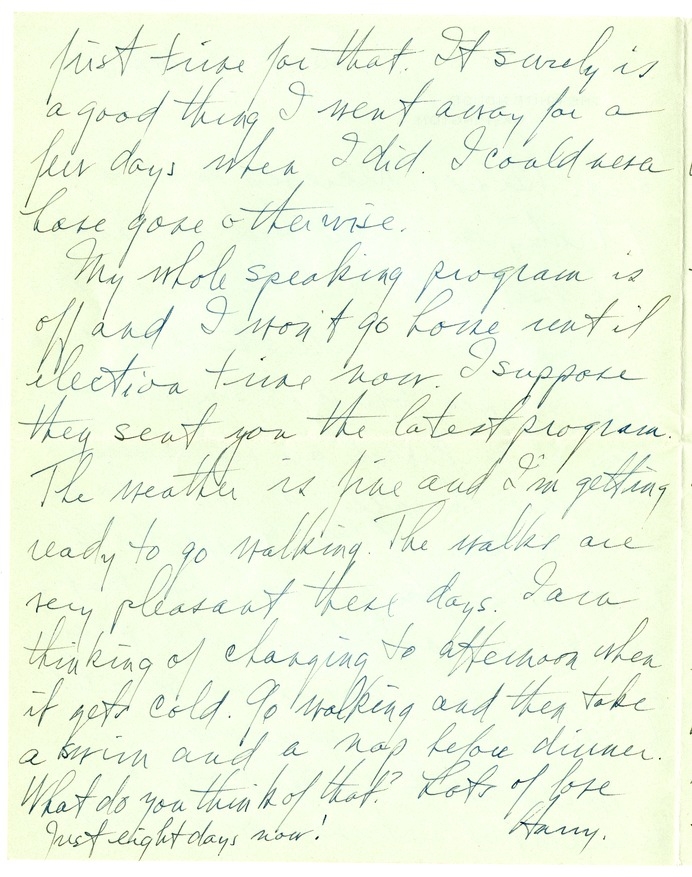 just time for that. It surely is
a good thing I went away for a
few days when I did. I could never
have gone otherwise.
My whole speaking program is
off and I won't go home until
election time now. I suppose
they sent you the latest program.
The weather is fine and I'm getting
ready to go walking. The walks are
very pleasant these days. I am
thinking of changing to afternoon when
it gets cold. Go walking and then take
a swim and a nap before dinner.
What do you think of that? Lots of love
Just eight days now! Harry.